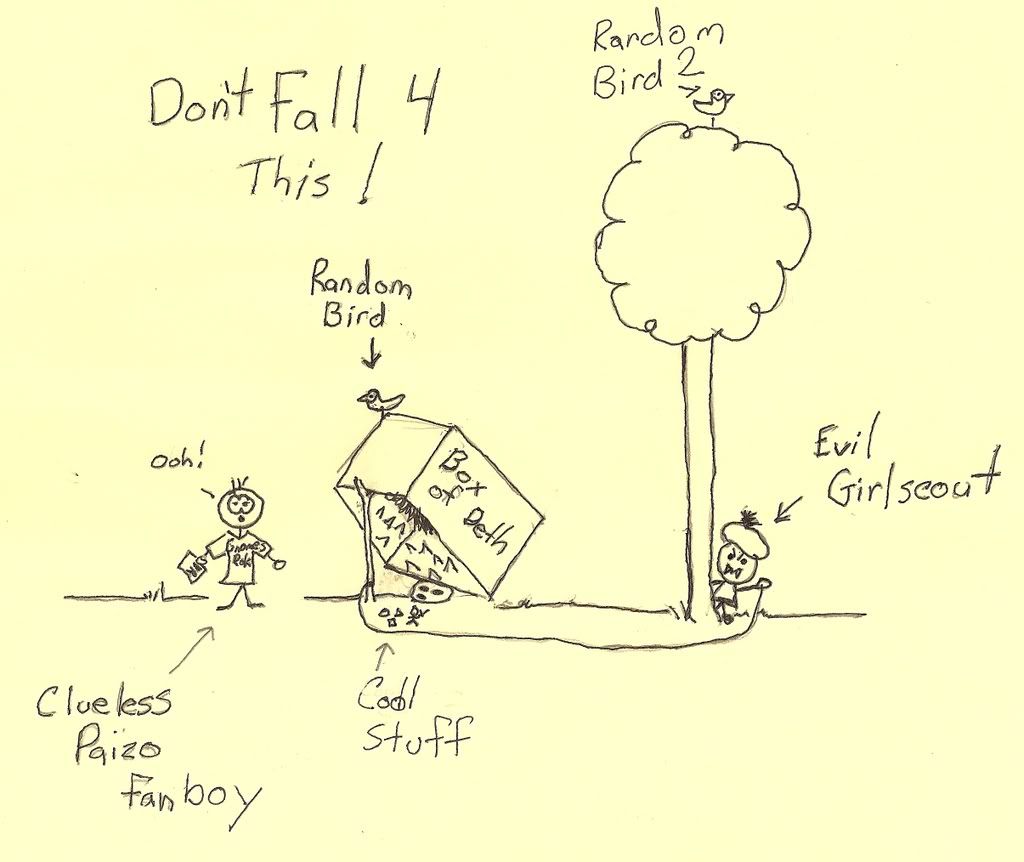 Don't Fall 4
This!
Random
Bird 2
Random
Bird
Ooh!
Gnomes
Rok
Box
of Deth
Evil
Girlscout
Clueless
Paizo
fanboy
Cool
Stuff